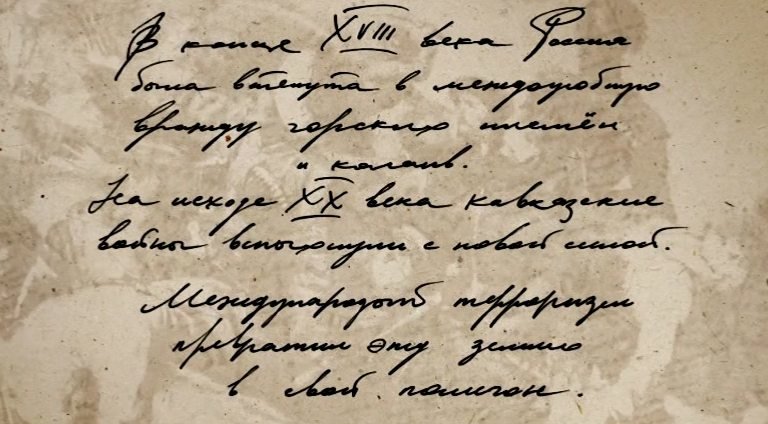 В конце XVIII века Россия
была втянута в междоусобную
вражду горских племён
и кланов.
На исходе XX века кавказские
войны вспыхнули с новой силой.
Международный терроризм
превратил эту землю
в свой полигон.